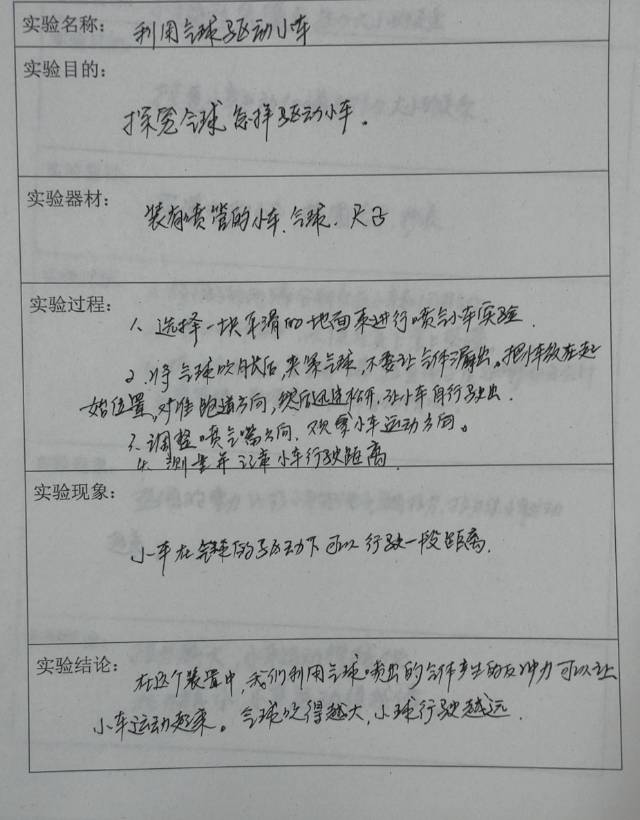 实验名称: 利用气球驱动小车
实验目的:
探究气球怎样驱动小车。
实验器材:
装有喷管的小车、气球、尺子
实验过程:
1、选择一块平滑的地面来进行喷气小车实验.
2、将气球吹气后,夹紧气球,不要让气体漏出。把小车放在起
始位置,对准跑道方向,然后迅速松开,让小车自行驶出.
3、调整喷气嘴方向,观察小车运动方向。
4、测量并记录小车行驶距离
实验现象:
小车在气球的驱动下可以行驶一段距离.
实验结论:
在这个装置中,我们利用气球喷出的气体产生的反冲力可以让
小车运动起来。气球吹得越大,小球行驶越远.